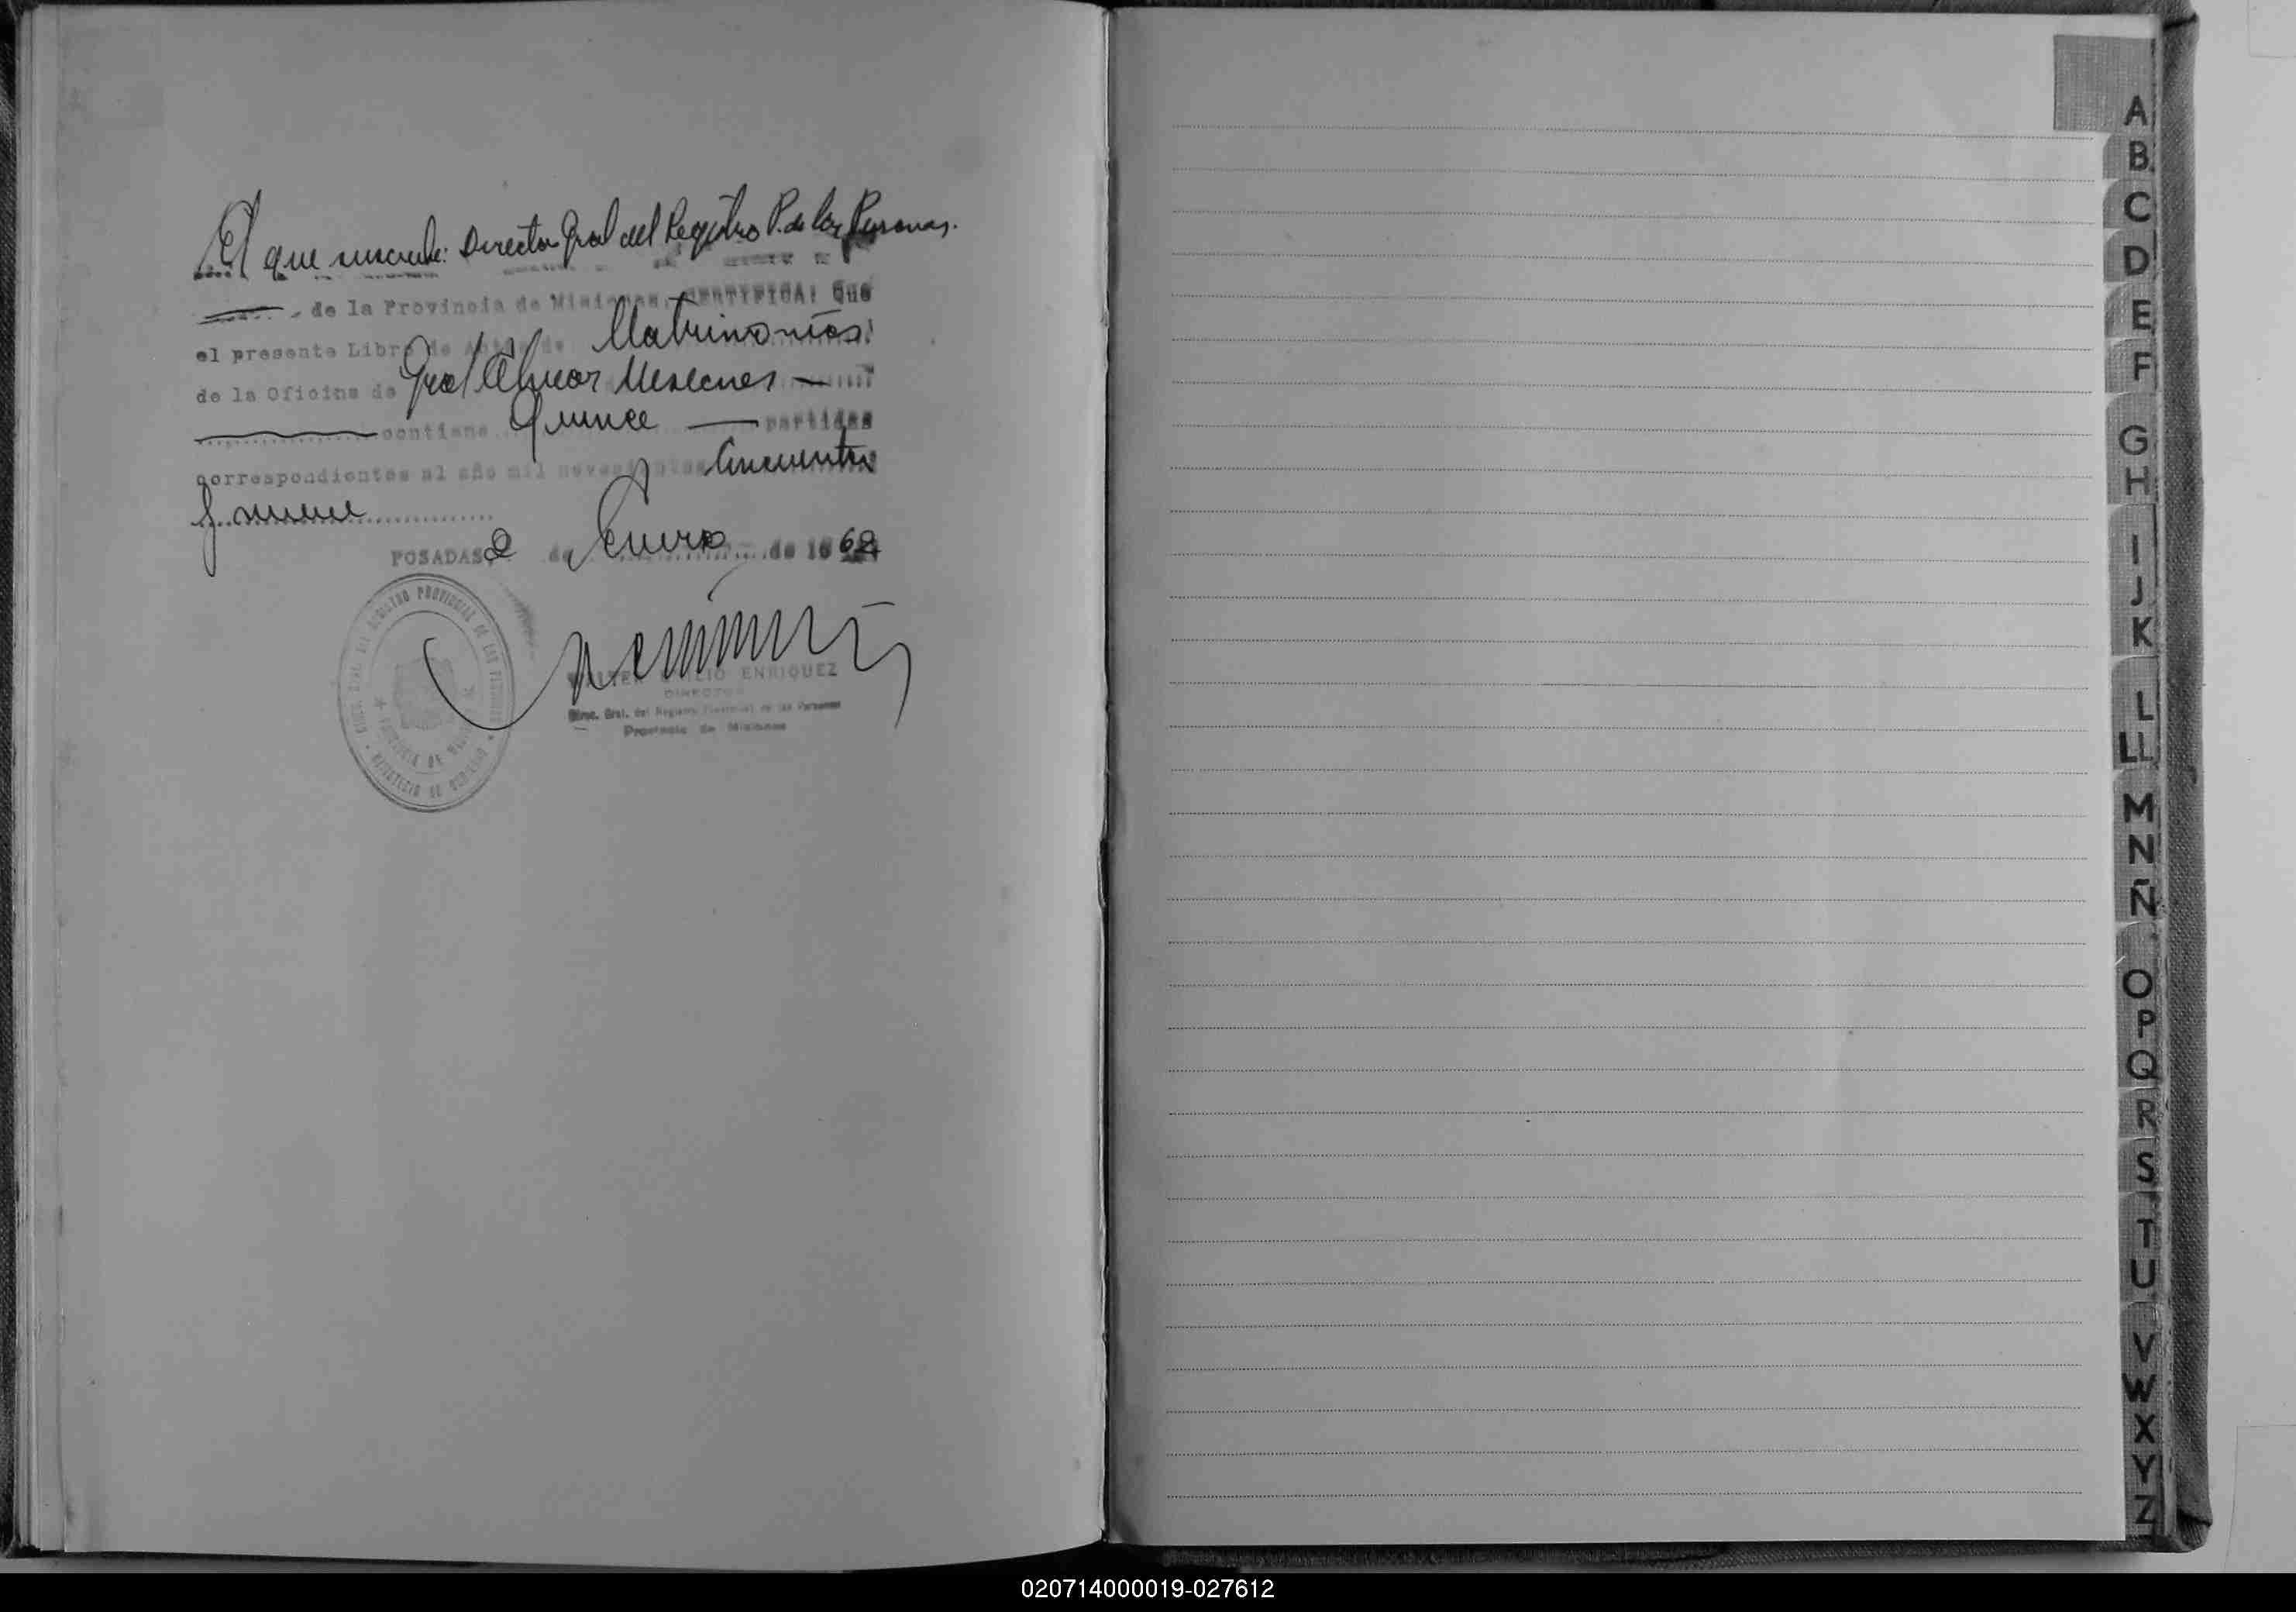 El que suscribe: Director Gral del Registro P. de las Personas.
de la Provincia de Misiones, CERTIFICA: Que
el presente Libro de Actas de Matrimonios
de la Oficina de Gral Alvear Misiones
contiene Quince partidas
correspondientes al año mil novecientos Cincuenta
y nueve
POSADAS, 2 de Enero de 19 62
REGISTRO PROVINCIAL DE LAS PERSONAS
PROVINCIA DE MISIONES
MINISTERIO DE GOBIERNO
ENRIQUEZ
DIRECTOR
Direc. Gral. del Registro Provincial de las Personas
Provincia de Misiones
A
B
C
D
E
F
G
H
I
J
K
L
LL
M
N
Ñ
O
P
Q
R
S
T
U
V
W
X
Y
Z
020714000019-027612